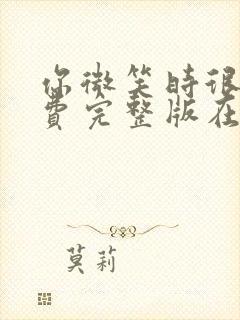 你微笑时很
费完整版在
莫莉